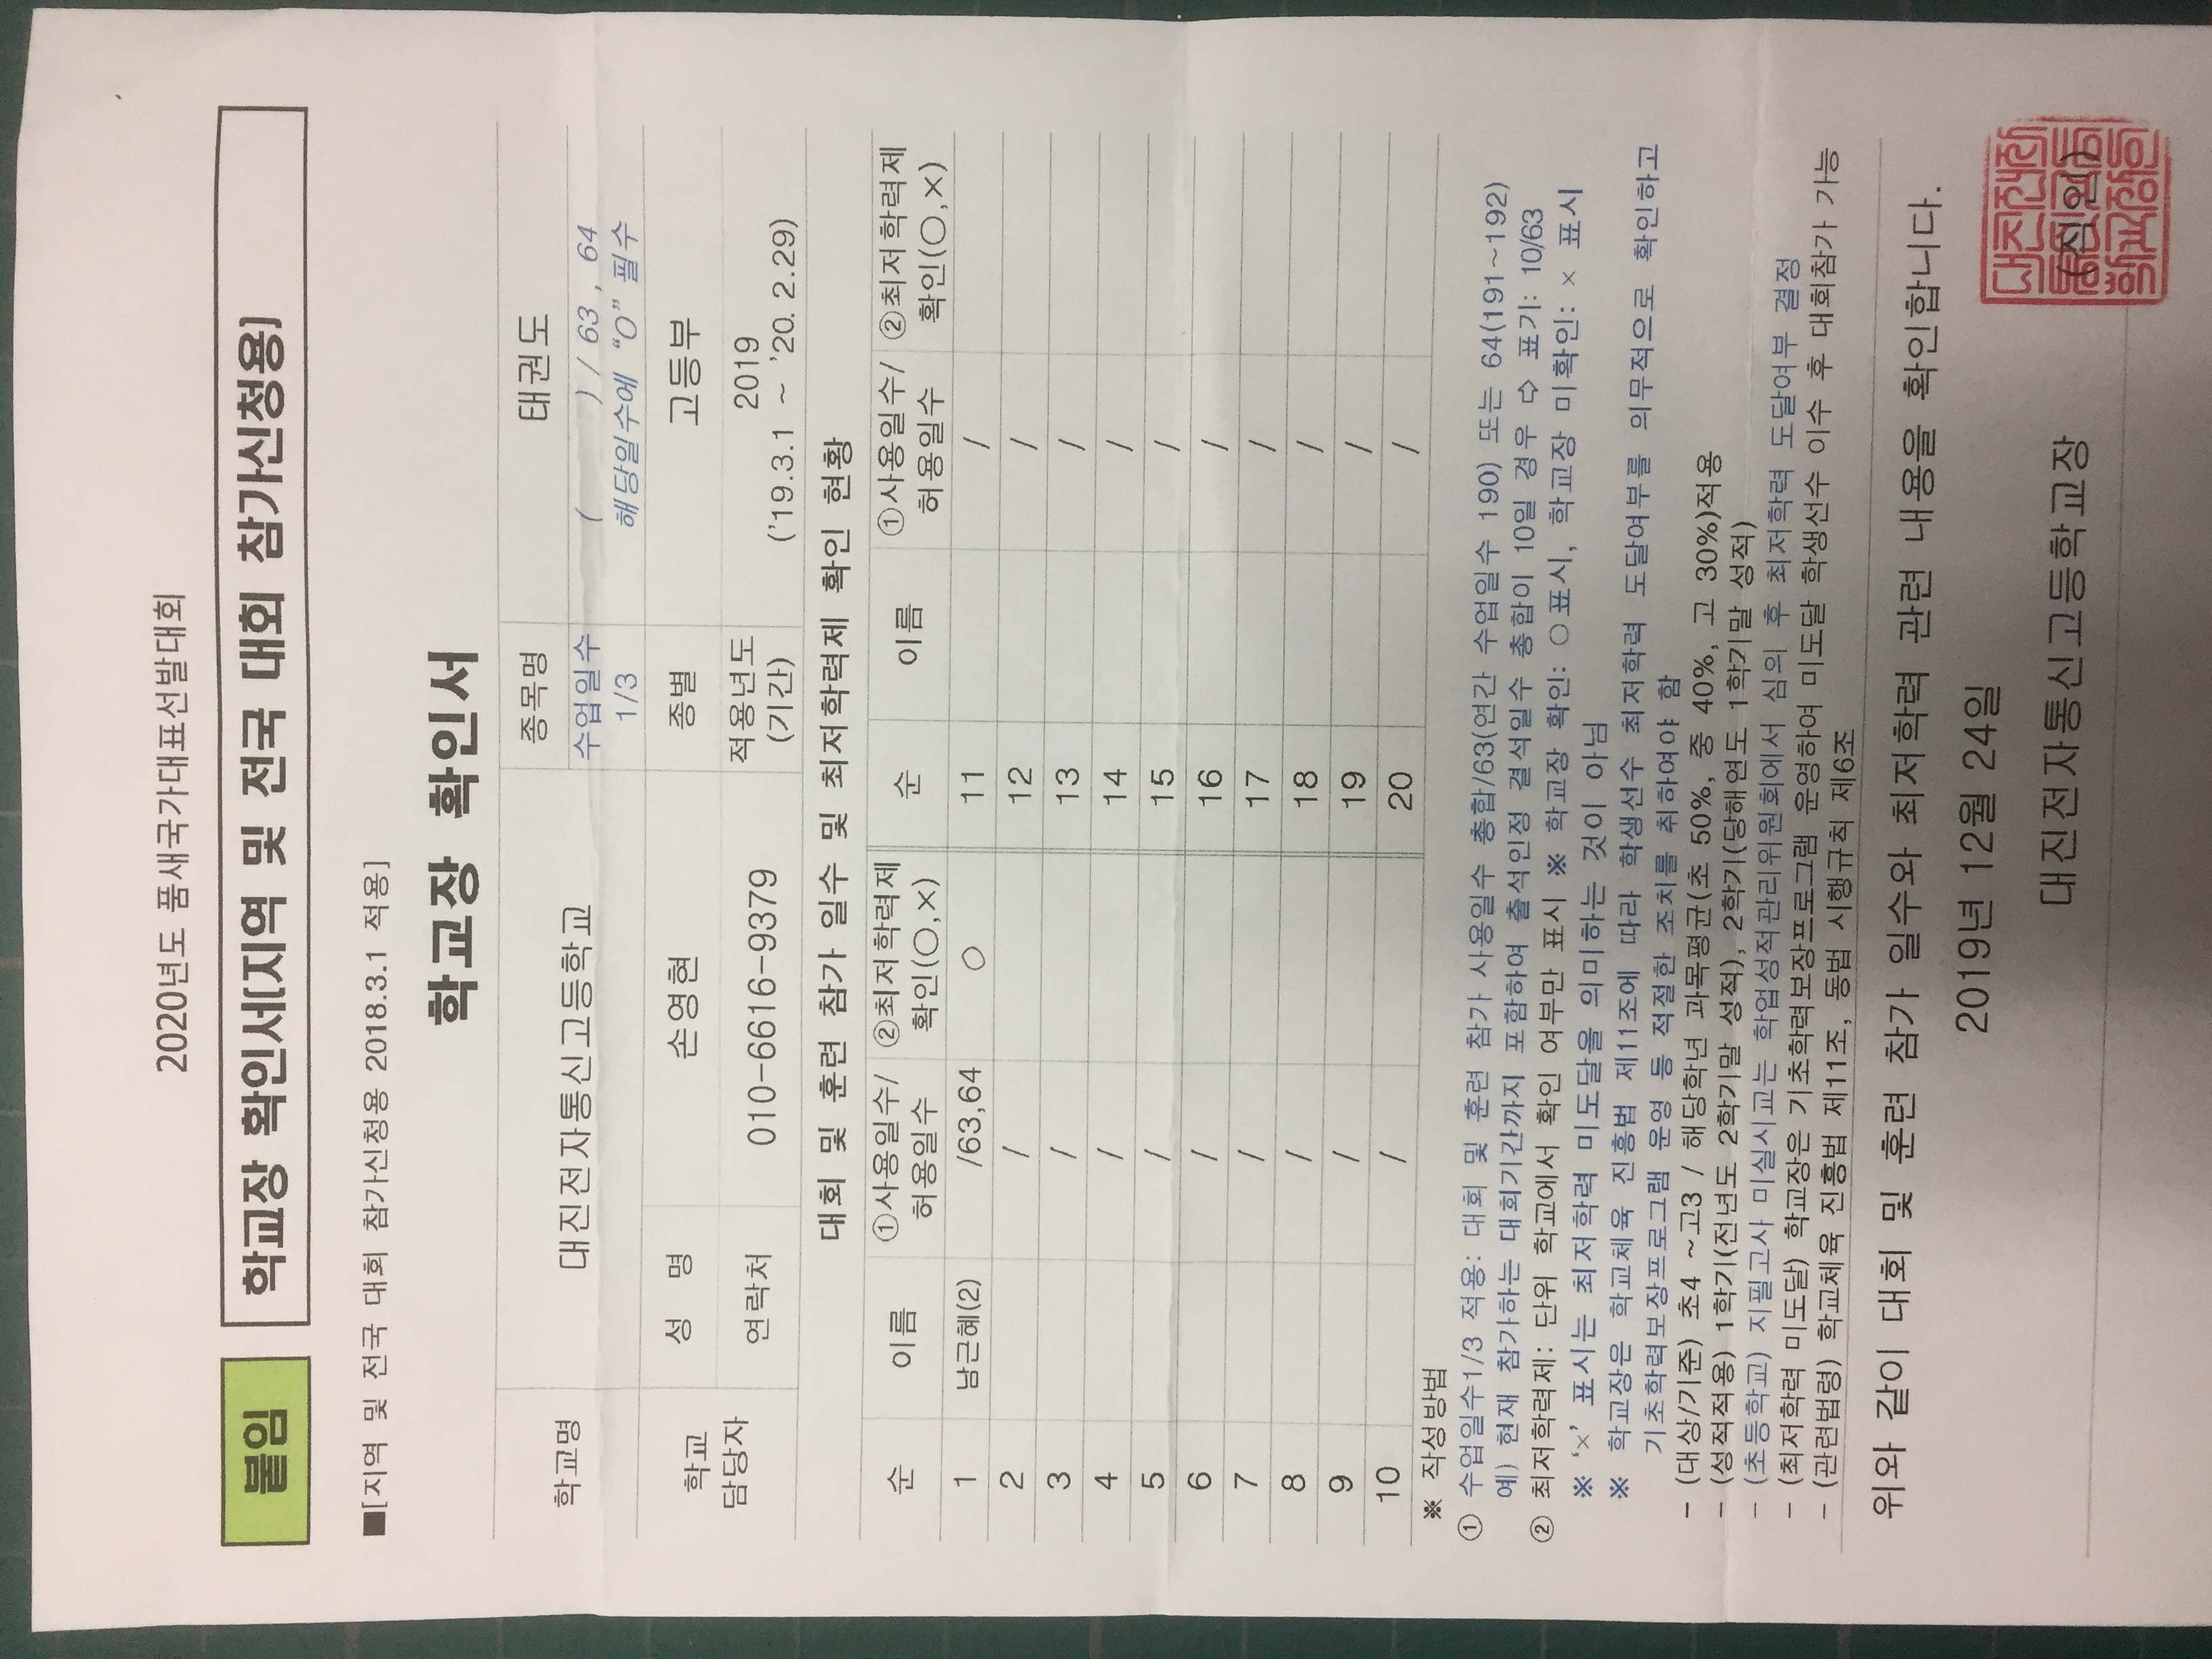 2020년도 품새국가대표선발대회
붙임
학교장 확인서(지역 및 전국 대회 참가신청용)
■[지역 및 전국 대회 참가신청용 2018.3.1 적용]
학교장 확인서
학교명 대진전자통신고등학교 종목명 태권도
수업일수 1/3 ( ) / 63 , 64
해당일수에 "O" 필수
학교 담당자 성 명 손영현 종별 고등부
연락처 010-6616-9379 적용년도 (기간) 2019
('19.3.1 ~ '20. 2.29)
대회 및 훈련 참가 일수 및 최저학력제 확인 현황
순 이름 ①사용일수/허용일수 ②최저학력제 확인(○,×) 순 이름 ①사용일수/허용일수 ②최저학력제 확인(○,×)
1 남근혜(2) /63,64 ○ 11 /
2 / 12 /
3 / 13 /
4 / 14 /
5 / 15 /
6 / 16 /
7 / 17 /
8 / 18 /
9 / 19 /
10 / 20 /
※ 작성방법
① 수업일수1/3 적용: 대회 및 훈련 참가 사용일수 총합/63(연간 수업일수 190) 또는 64(191~192)
예) 현재 참가하는 대회기간까지 포함하여 출석인정 결석일수 총합이 10일 경우 ⇨ 표기: 10/63
② 최저학력제: 단위 학교에서 확인 여부만 표시 ※ 학교장 확인: ○표시, 학교장 미확인: × 표시
※ '×' 표시는 최저학력 미도달을 의미하는 것이 아님
※ 학교장은 학교체육 진흥법 제11조에 따라 학생선수 최저학력 도달여부를 의무적으로 확인하고
기초학력보장프로그램 운영 등 적절한 조치를 취하여야 함
- (대상/기준) 초4 ~고3 / 해당학년 과목평균(초 50%, 중 40%, 고 30%)적용
- (성적적용) 1학기(전년도 2학기말 성적), 2학기(당해연도 1학기말 성적)
- (초등학교) 지필고사 미실시교는 학업성적관리위원회에서 심의 후 최저학력 도달여부 결정
- (최저학력 미도달) 학교장은 기초학력보장프로그램 운영하여 미도달 학생선수 이수 후 대회참가 가능
- (관련법령) 학교체육 진흥법 제11조, 동법 시행규칙 제6조
위와 같이 대회 및 훈련 참가 일수와 최저학력 관련 내용을 확인합니다.
2019년 12월 24일
대진전자통신고등학교장 (직인)